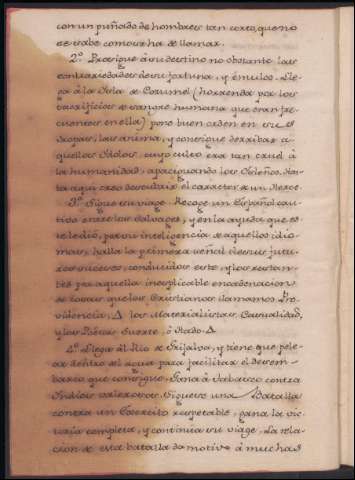 con un puñado de hombres tan corto, que no
se sabe como se ha de llamar.
2.º Prosigue à su destino no obstante las
contrariedades de su fortuna, y émulos. Lle-
ga à la Isla de Cozumel (horrenda por los
sacrificios de sangre humana que eran fre-
cuentes en ella) pone buen orden en sus
tropas, las anima, y consigue derribar à-
quellos Idolos, cuyo culto era tan cruel à
la humanidad, apacionando los Isleños. Has-
ta aqui creo descubrir el caracter de un Heroe.
3.º Sigue su viage. Recoge un Español cau-
tivo entre los Salvages, y en la ayuda que es-
te le dió, por su inteligencia de aquellos idio-
mas, halla la primera señal de sus futu-
ros sucesos, conducidos este, y los restan-
tes por aquella inexplicable encadenacion
de cosas, que los Christianos llamamos Pro-
videncia, Δ los Materialistas Casualidad,
y los Poëtas Suerte, ò Hado. Δ
4.º Llega al Rio de Grijalva, y tiene que pele-
ar dentro del agua para facilitar el desem-
barco que consigue. Gana à Tabasco contra
Indios valerosos. Siguese una Batalla
contra un Exercito respetable, gana la vic-
toria completa, y continúa su viage. La rela-
cion de esta batalla da motivo à muchas